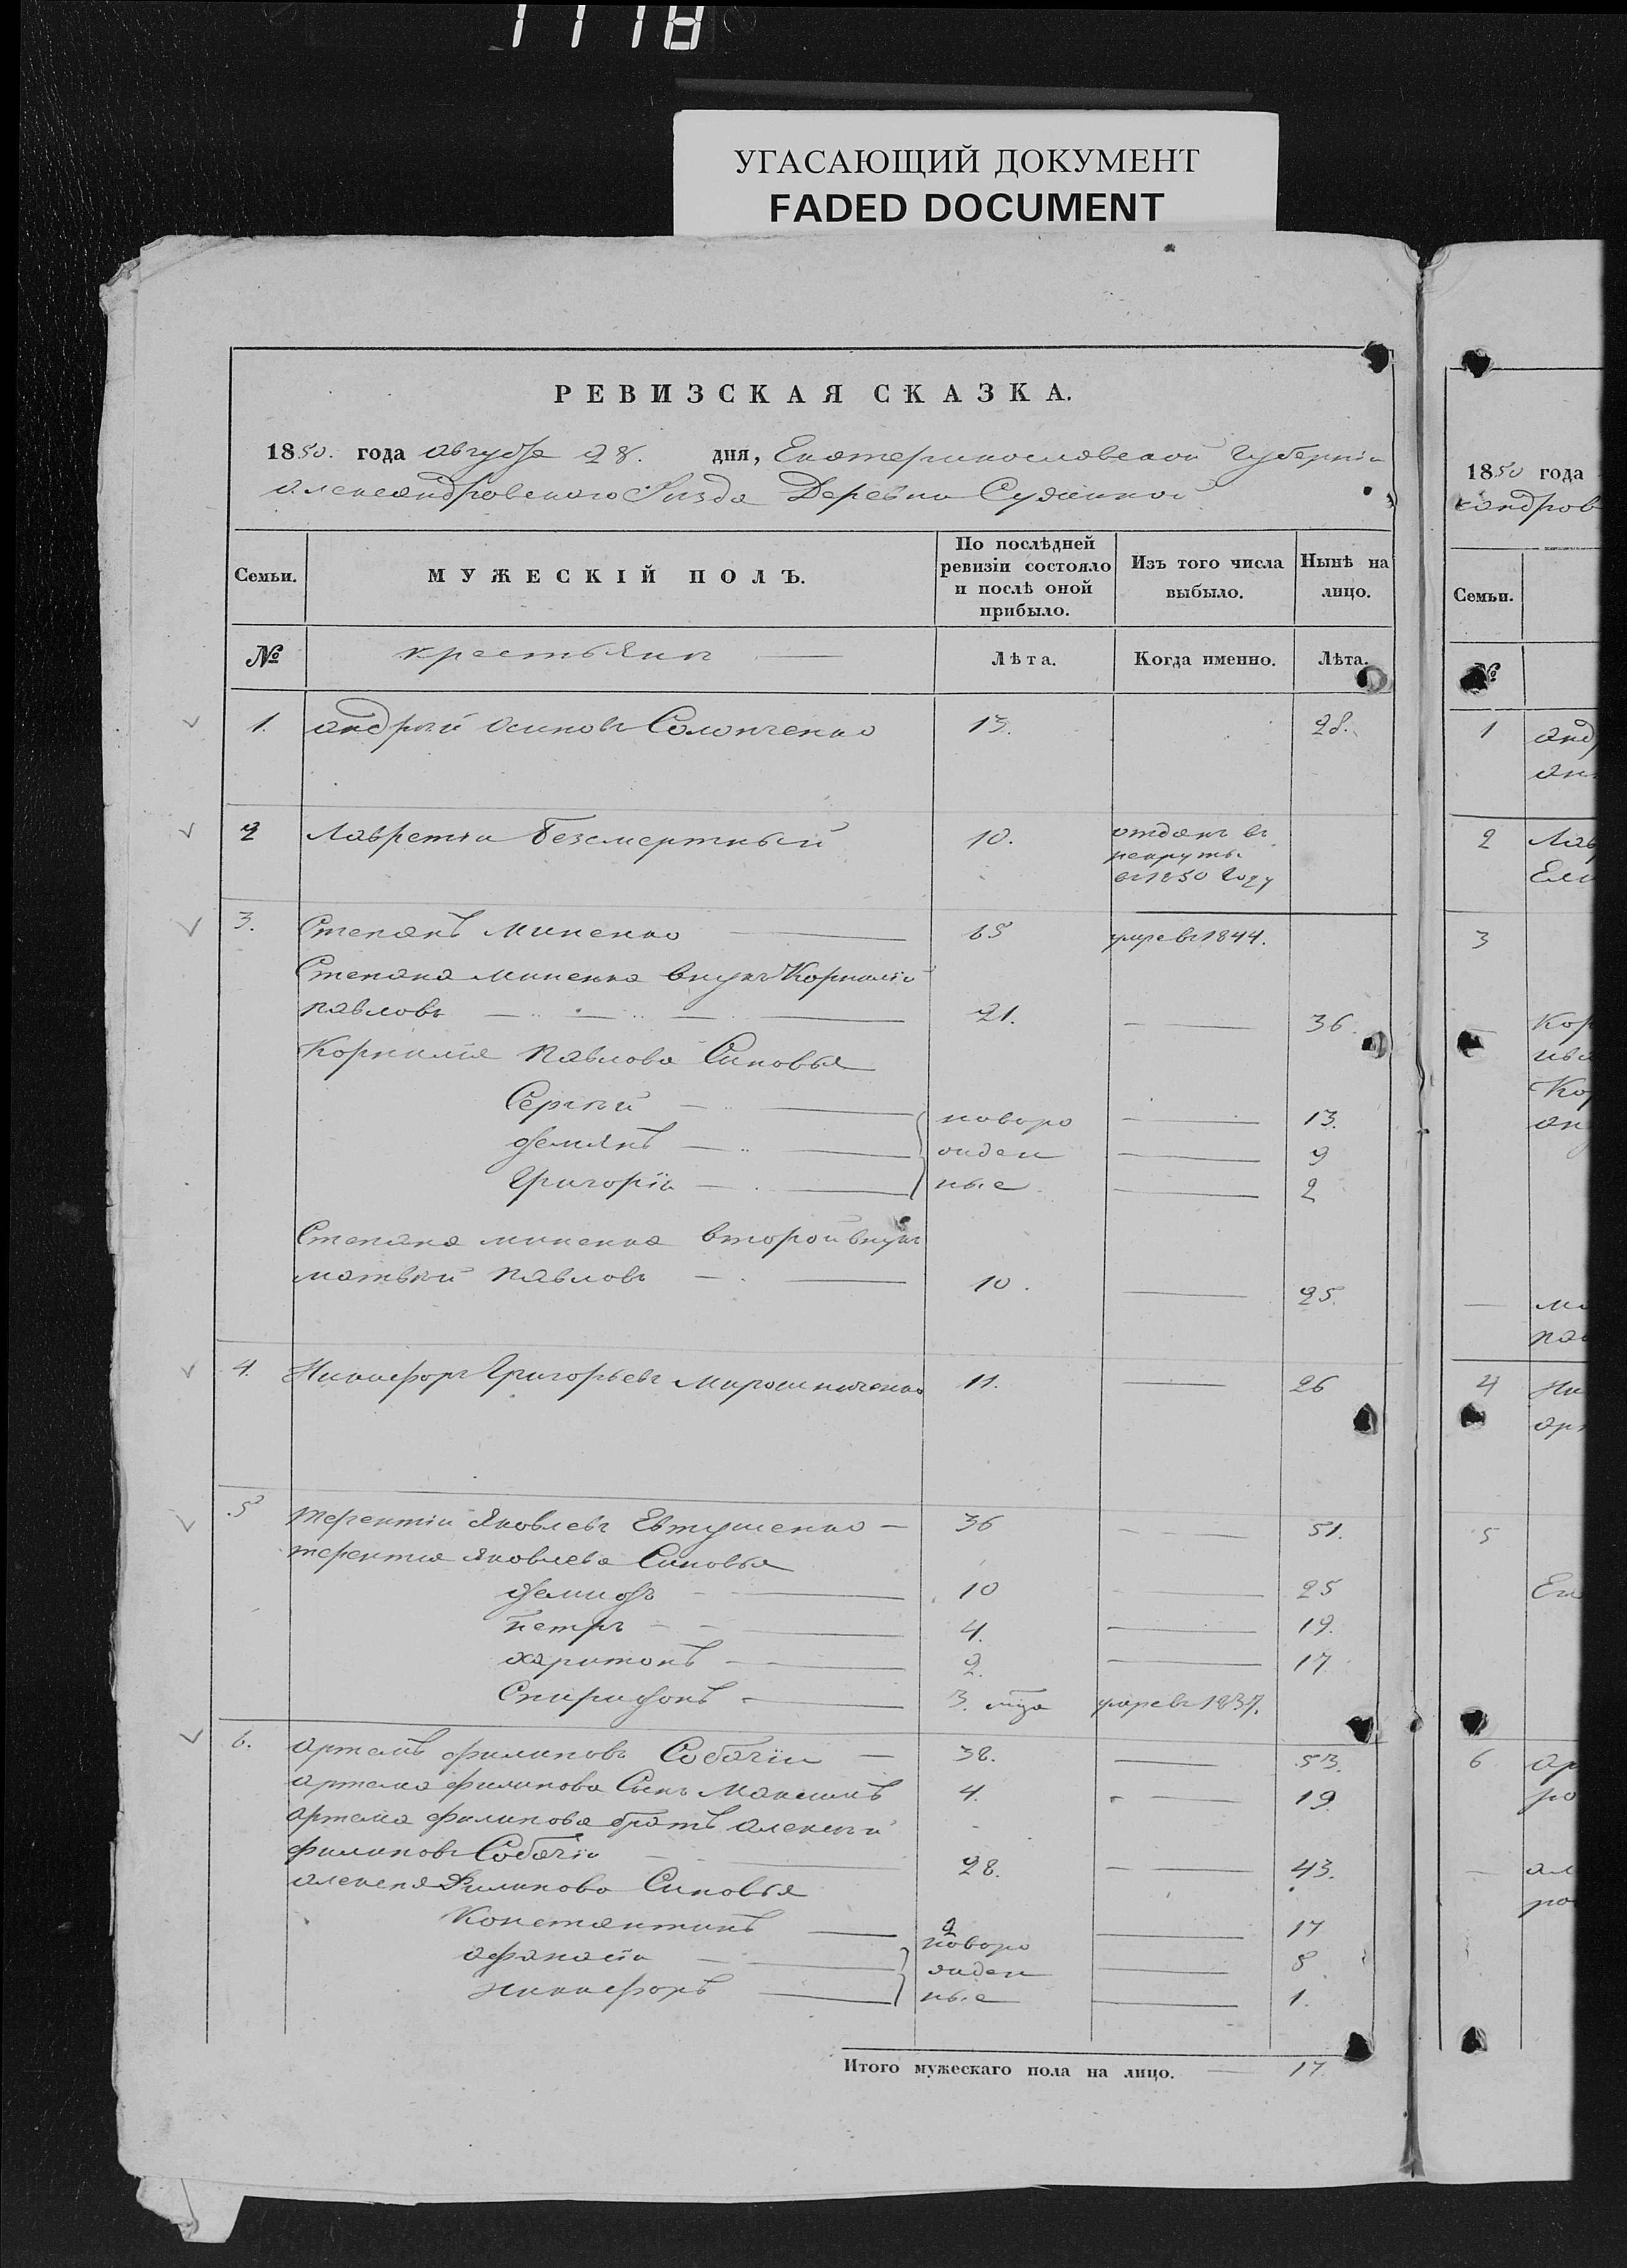 1118
УГАСАЮЩИЙ ДОКУМЕНТ
FADED DOCUMENT
РЕВИЗСКАЯ СКАЗКА.
1850. года августа 28. дня, Екатеринославской Губерніи
александровского Уезда Деревни
Семьи. МУЖЕСКІЙ ПОЛЪ. По послѣдней ревизіи состояло и послѣ оной прибыло. Изъ того числа выбыло. Нынѣ на лицо.
№ крестьяни Лѣта. Когда именно. Лѣта.
1. андрѣй осиповъ 13. 28.
2 Лаврентіи Безсмертный 10. отданъ въ
рекруты
въ 1850 году
3. Степанъ миненко 65 умре въ 1844.
Степана миненка внукъ Корнилій
павловъ 21. 36.
Корнилія павлова Синовья
Сергѣй новоро 13.
демянъ жден 9
Григорій ные 2
Степана миненка второй внукъ
матвѣй павловъ 10. 25.
4. Никифоръ Григорьевъ мирошниченко 11. 26
5 терентіи яковлевъ Евтушенко 36 51.
терентия яковлева Синовья
демидъ 10 25
петръ 4. 19.
харитонъ 2. 17
Спиридонъ 3. мца умре въ 1837.
6. артемъ филиповъ Собачіи 38. 53.
артема филипова Сынъ Максимъ 4. 19
артема филипова братъ алексѣй
филиповъ Собачіи 28. 43.
алексея Филипова Синовья
Константинъ 2 17
афанасіи новоро 8
никифоръ жден 1.
ные
Итого мужескаго пола на лицо. 17
1850 года
ксандров
Семьи.
№
1 анд
2 Лав
Ели
3
Кор
Ко
4 Ни
5
6 ар